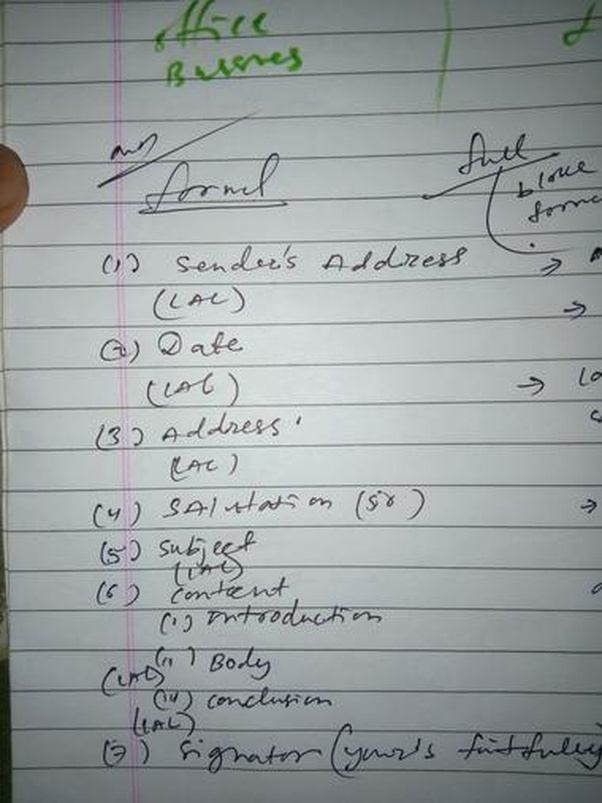 office
Bussnes
formel
full
block
(1) Sender's Address
(LAL)
(2) Date
(LAL)
(3) Address
(LAL)
(4) SALutation (Sir)
(5) Subject
(LAL)
(6) Content
(i) introduction
(ii) Body
(LAL)
(iii) conclusion
(LAL)
(7) Signator (your's faitfully